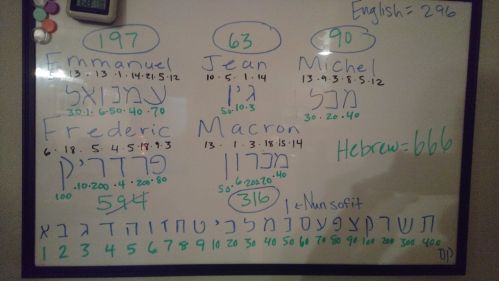 English = 296
197 63 90
Emmanuel Jean Michel
5 · 13 · 13 · 1 · 14 · 21 · 5 · 12 10 · 5 · 1 · 14 13 · 9 · 3 · 8 · 5 · 12
עמנואל גין מכל
30 · 1 · 6 · 50 · 40 · 70 50 · 10 · 3 30 · 20 · 40
Frederic Macron
6 · 18 · 5 · 4 · 5 · 18 · 9 · 3 13 · 1 · 3 · 18 · 15 · 14
Hebrew = 666
פרדריק מכרון
100 · 10 · 200 · 4 · 200 · 80 50 · 6 · 200 · 20 · 40
594 316 ן ← Nun sofit
א ב ג ד ה ו ז ח ט י כ ל מ נ ס ע פ צ ק ר ש ת
1 2 3 4 5 6 7 8 9 10 20 30 40 50 60 70 80 90 100 200 300 400